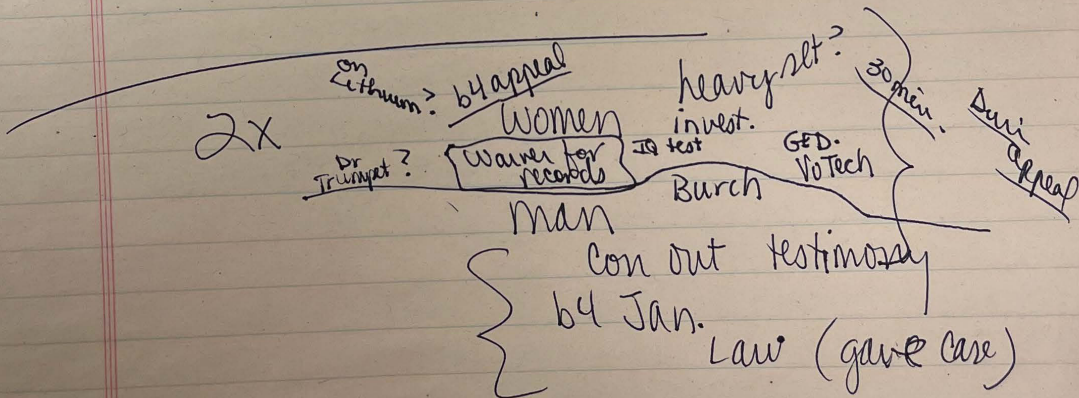 on
Lithium?
b4 appeal
heavy set?
30 min.
2x
women
invest.
Duri
appeal
Dr
Trumpet?
Waiver for
records
IQ test
GED.
VoTech
Burch
man
Con out testimony
b4 Jan.
Law (gave case)